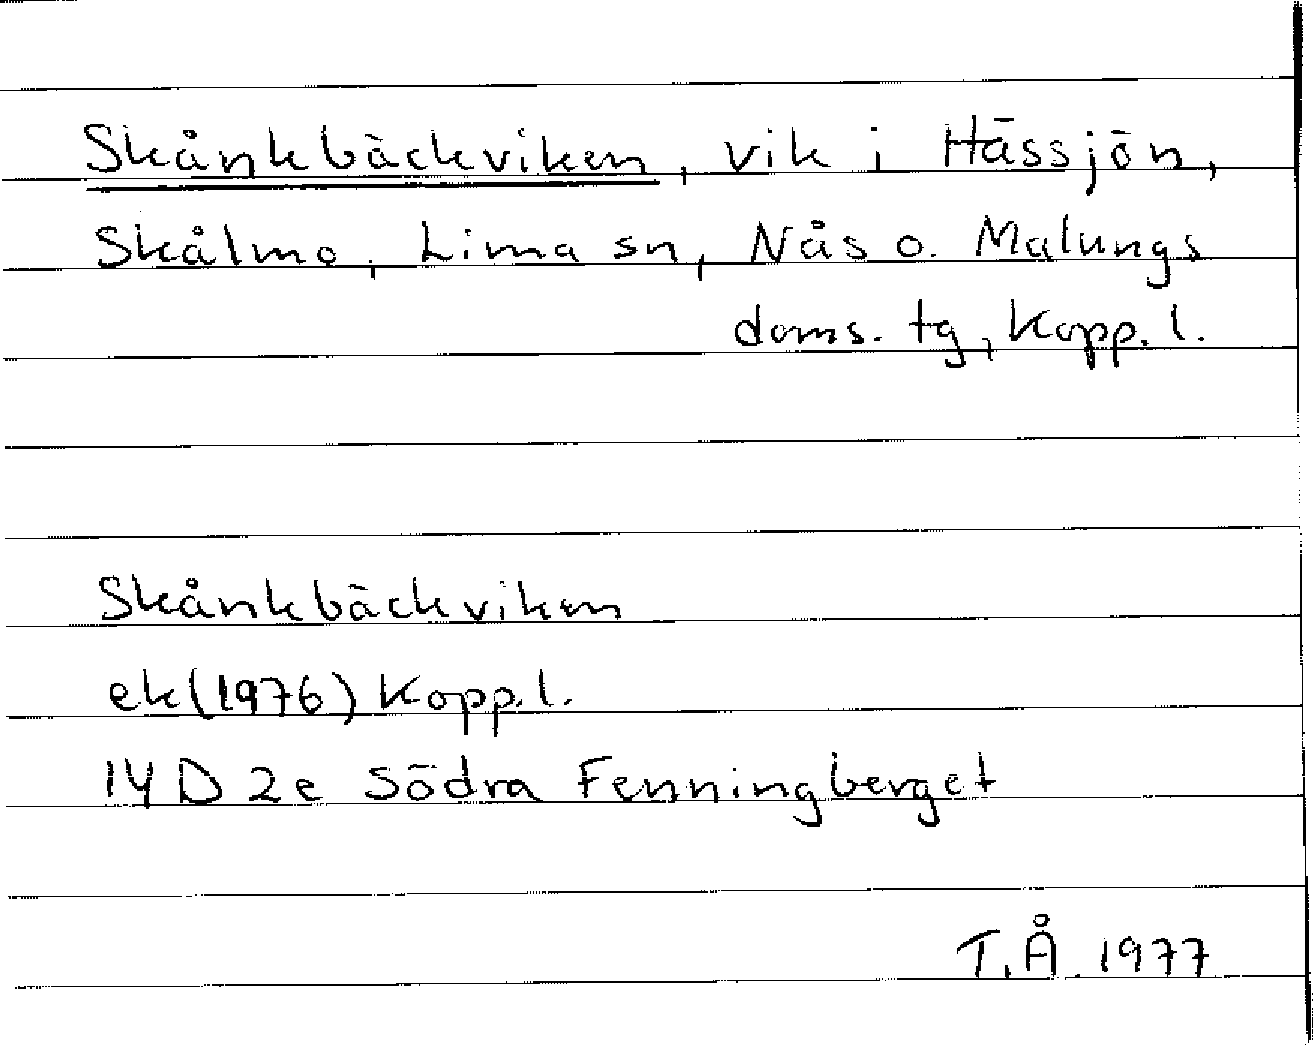 Skånkbäckviken, vik i Hässjön,
Skålmo, Lima sn, Nås o. Malungs
doms. tg, Kopp. l.
Skånkbäckviken
ek (1976) Kopp. l.
14 D 2e Södra Fenningberget
T.Å. 1977